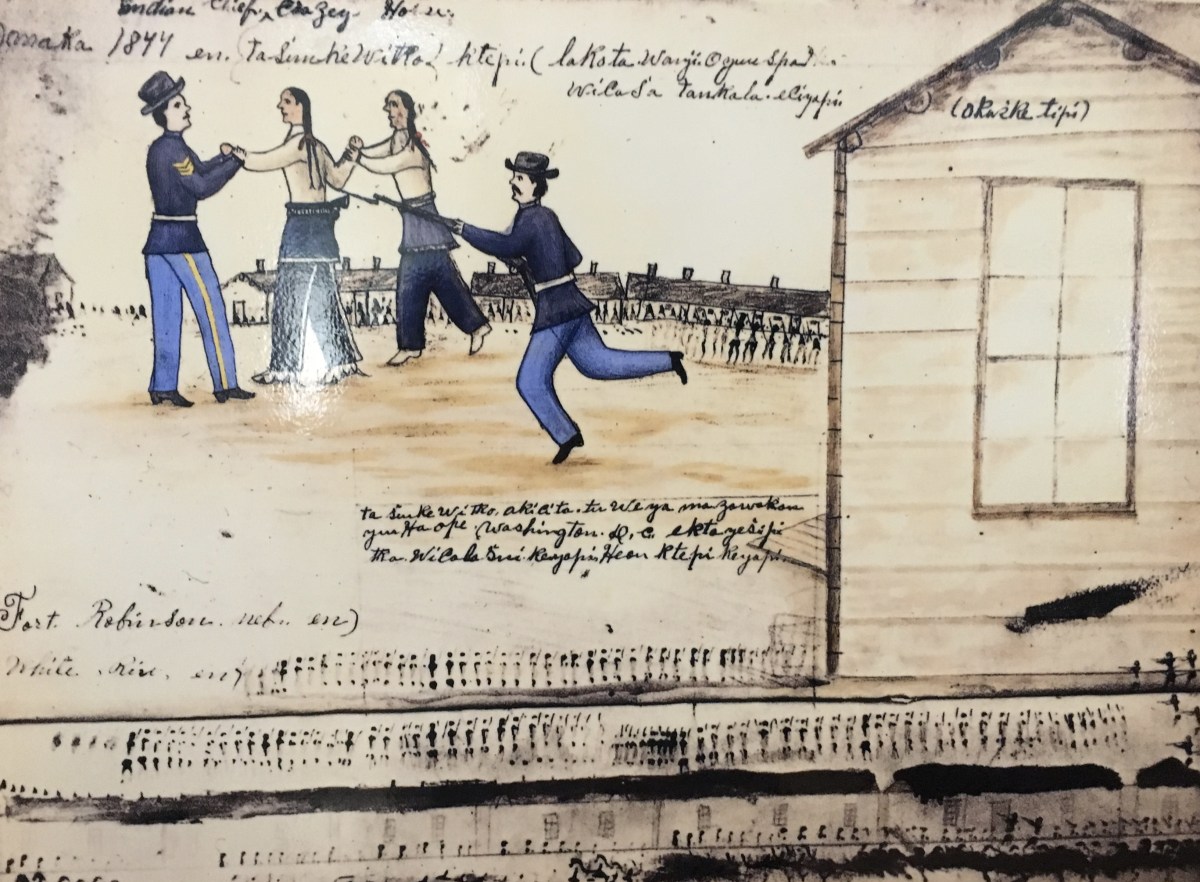 Indian Chief, Crazey Horse.
1877 en. Tasunke Witko) ktepi. ( lakota Wanji Oyuspa
Wicasa Tankala. eciyapi
(Okaske tipi)
ta sunke Witko. akicita. tuweya mazawakan
yuha ope Washington. D, C. ekta yesipi
tka. Wicala Sni. Keyapi. Heon Ktepi Keyapi.
Fort. Robinson. neb. en)
White. river. en)